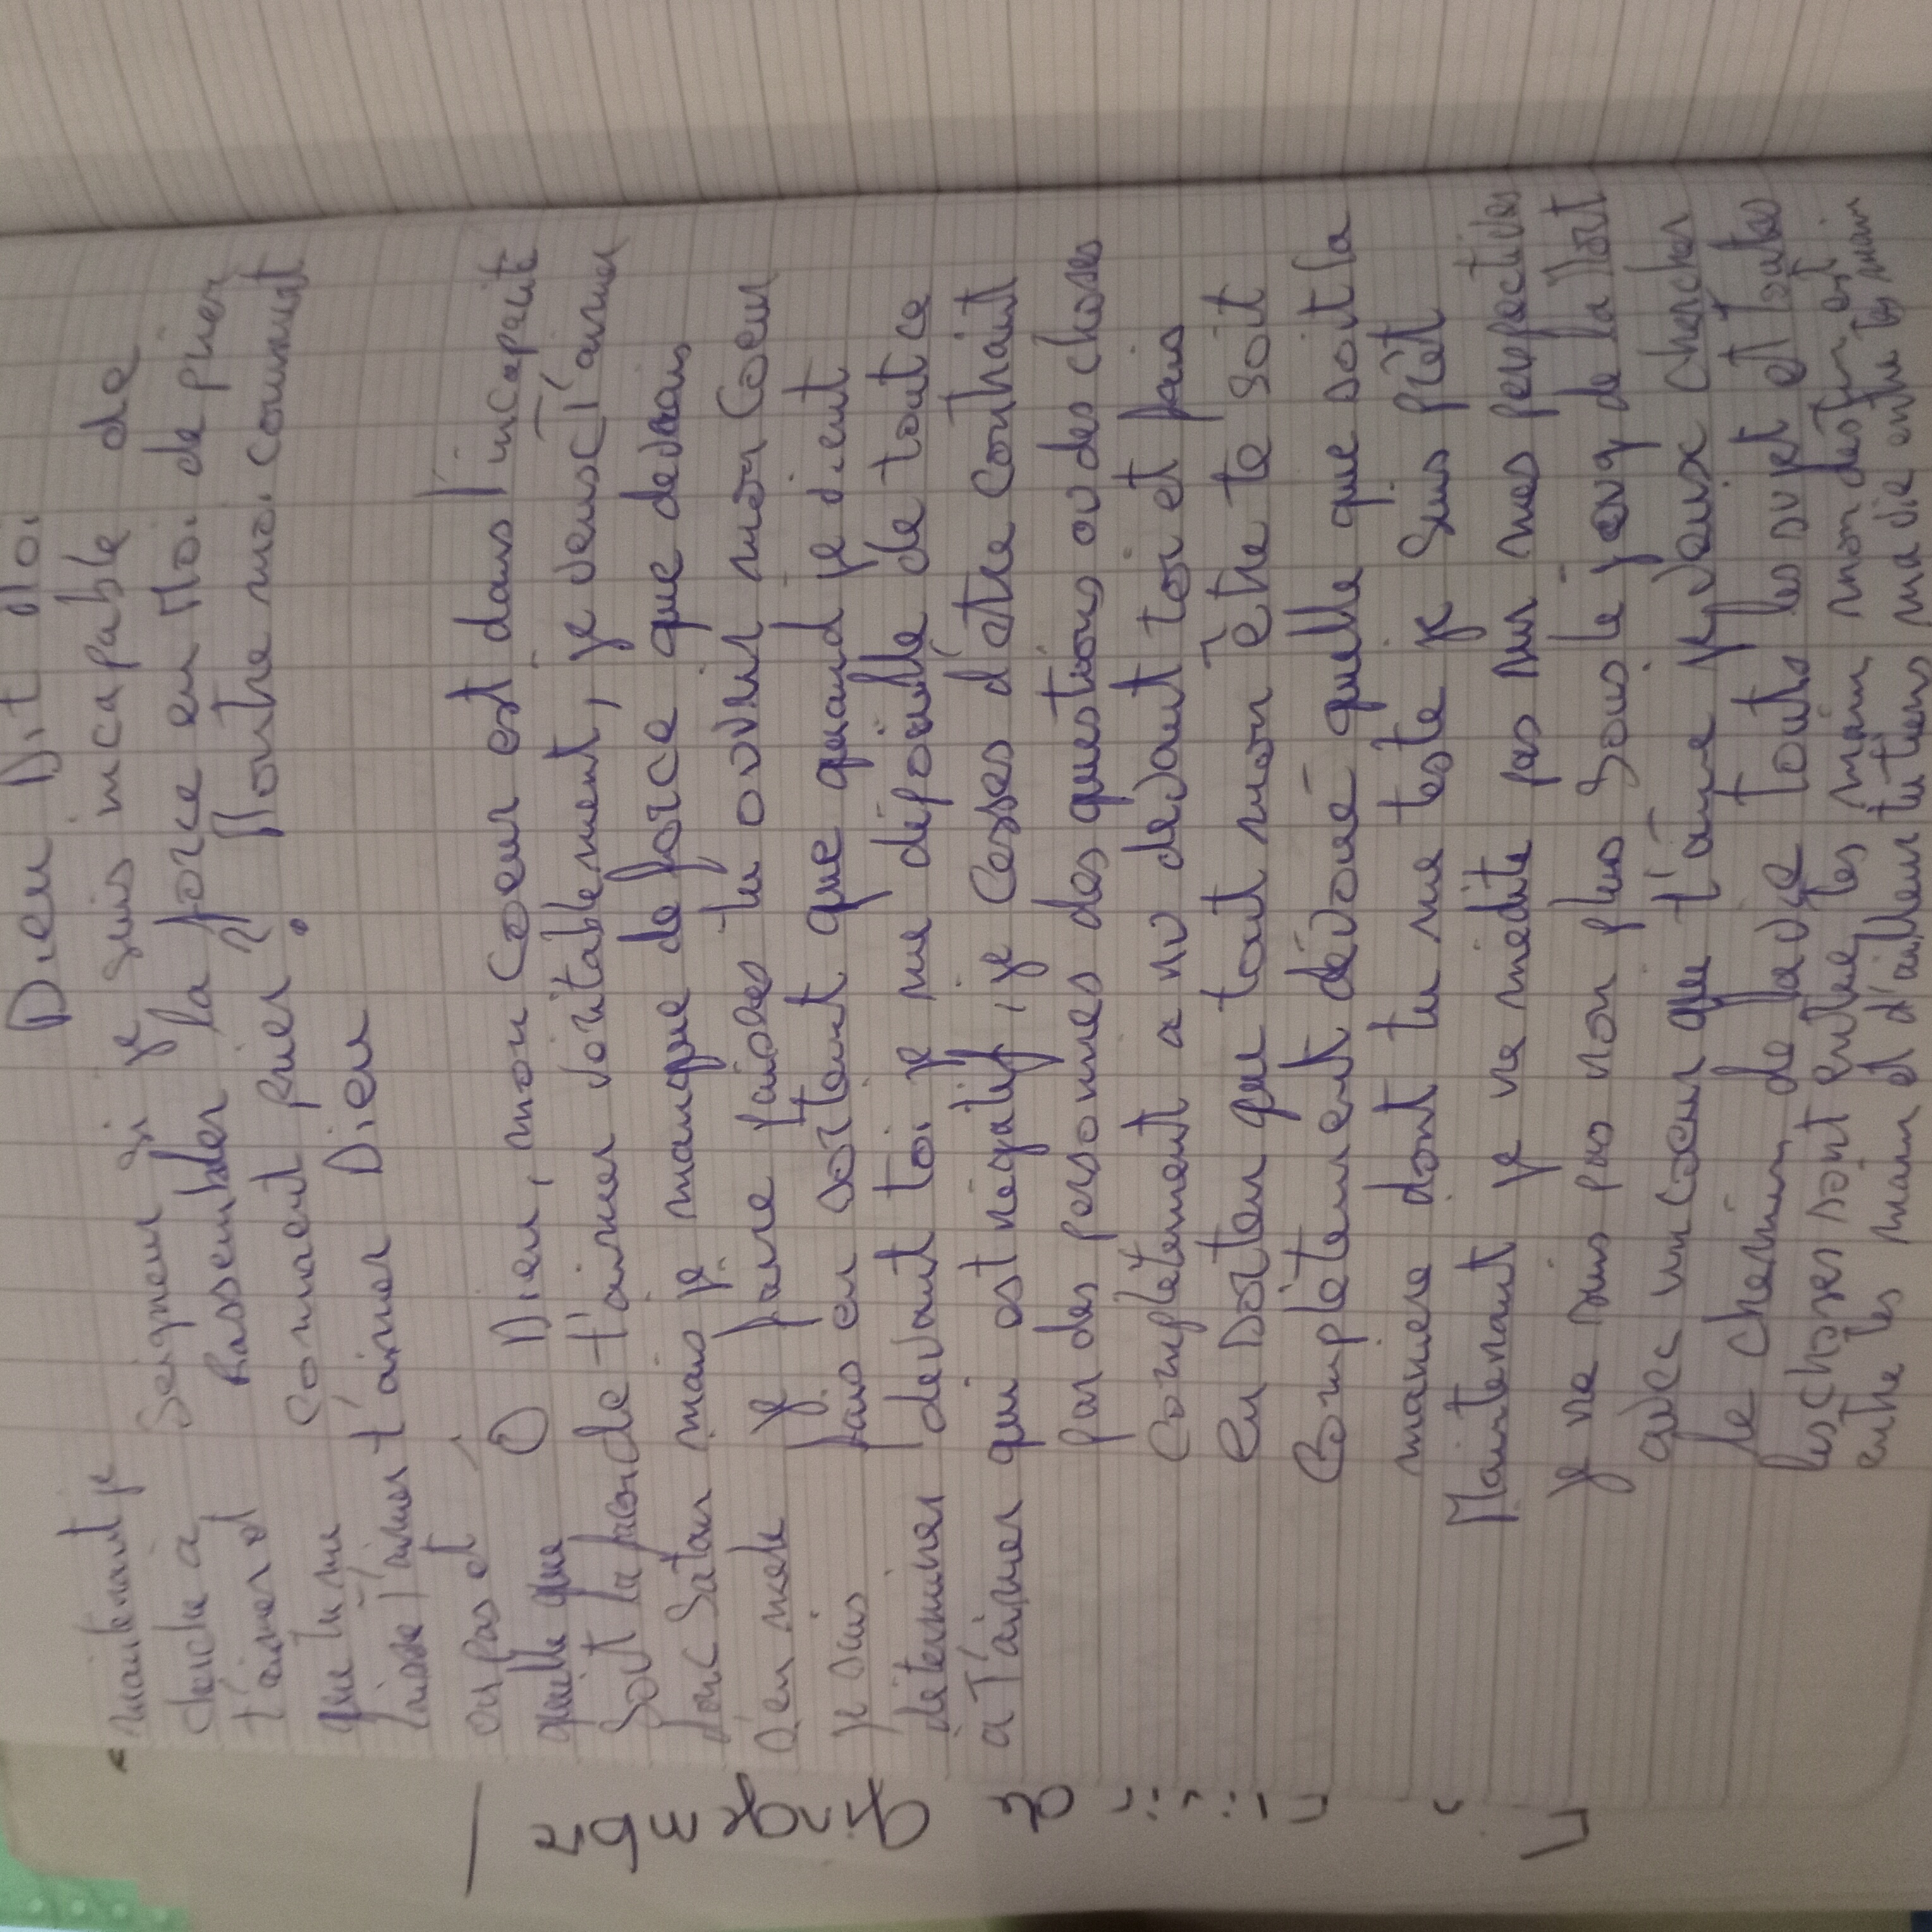 Dieu Dit Moi
Seigneur si je suis incapable de
Rassembler la force en Moi de prier
comment prier ? Montre moi comment
t'aimer Dieu
O Dieu, mon Coeur est dans l'incapacité
de t'aimer véritablement, je veux T'aimer
mais je manque de force que devrais
je faire faire tu ouvrir mon Coeur
fais en sortant que quand je vient
devant toi je me dépouille de tout ce
qui est négatif, je Cesses d'être contraint
par des personnes des questions ou des choses
complètement a nu devant toi et fais
en Sorten que tout mon être te soit
Complètement dévoué quelle que soit la
maniere dont tu me teste je suis prêt
Maintenant je ne médite pas sur mes perspectives
je ne suis pas non plus Sous le joug de la Mort
avec un coeur qui t'aime je veux chercher
le chemin de la vie Touts les sujet et toutes
les choses sont entre tes main mon destin est
entre tes main et d'ailleur tu tiens ma vie entre tes main
maintenant je
cherche à
t'aimer et
que tu me
laisse t'aimer
ou pas et
quelle que
Soit la
dont Satan
s'en mele
je suis
déterminer
a T'aimer
gingembre